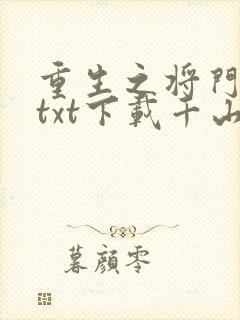 重生之将門
txt下載千山
暮顔零